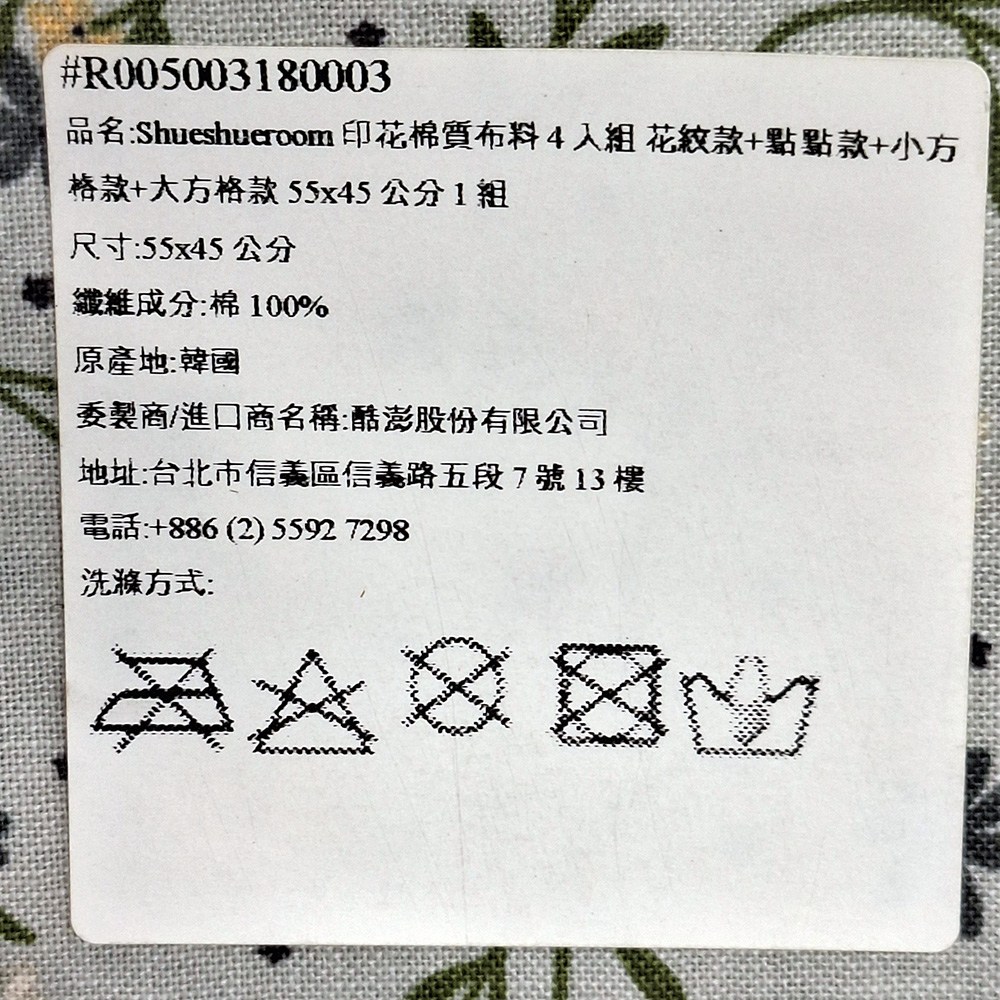 #R005003180003
品名:Shueshueroom 印花棉質布料 4 入組 花紋款+點點款+小方
格款+大方格款 55x45 公分 1 組
尺寸:55x45 公分
纖維成分:棉 100%
原產地:韓國
委製商/進口商名稱:酷澎股份有限公司
地址:台北市信義區信義路五段 7 號 13 樓
電話:+886 (2) 5592 7298
洗滌方式: